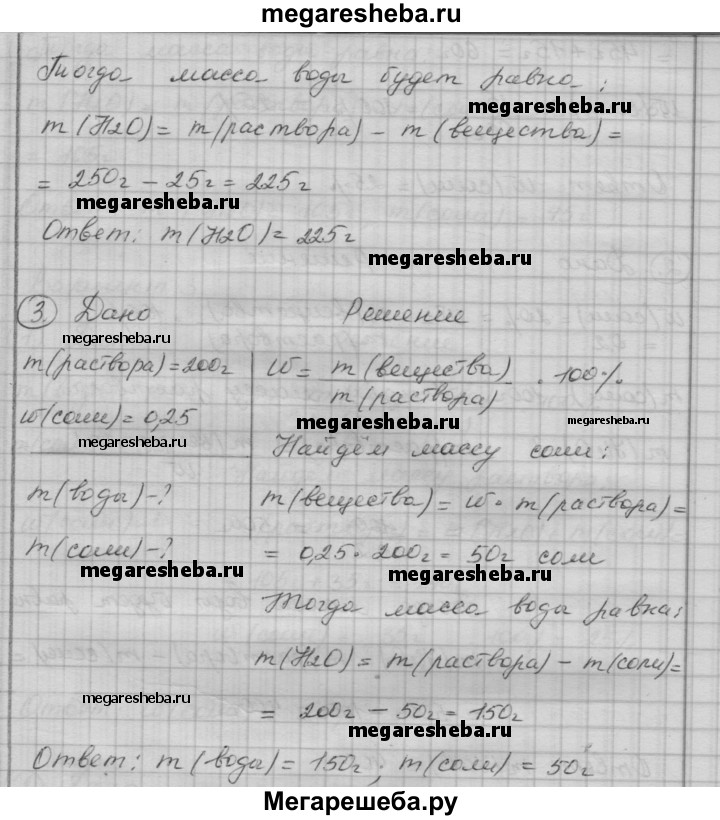 megaresheba.ru
Тогда масса воды будет равна:
megaresheba.ru
m(H2O) = m(раствора) - m(вещества) =
= 250г - 25г = 225г
megaresheba.ru
Ответ: m(H2O) = 225г
megaresheba.ru
3. Дано Решение
megaresheba.ru megaresheba.ru
m(раствора) = 200г w = m(вещества) / m(раствора) · 100%
w(соли) = 0,25
megaresheba.ru
megaresheba.ru
Найдём массу соли:
m(воды) - ? m(вещества) = w · m(раствора) =
m(соли) - ? = 0,25 · 200г = 50г соли
megaresheba.ru megaresheba.ru
Тогда масса вода равна:
m(H2O) = m(раствора) - m(соли) =
megaresheba.ru
= 200г - 50г = 150г
megaresheba.ru
Ответ: m(воды) = 150г; m(соли) = 50г
Мегарешеба.ру